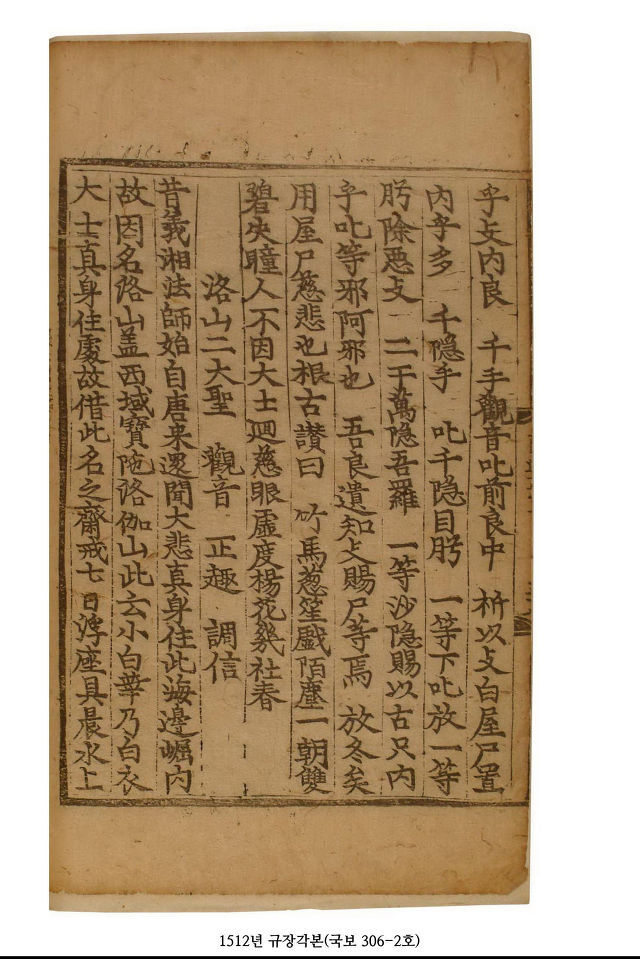 乎攴内良　千手觀音叱前良中　祈以攴白屋尸置
内乎多　千隠手　叱千隠目肹　一等下叱放一等
肹除惡攴　二于萬隠吾羅　一等沙隠賜以古只内
乎叱等邪阿邪也　吾良遺知攴賜尸等焉　放冬矣
用屋尸慈悲也根古讃曰　竹馬葱笙戲陌塵一朝雙
碧失瞳人不因大士廻慈眼虛度楊花幾社春
洛山二大聖　觀音　正趣　調信
昔義湘法師始自唐来還聞大悲真身住此海邊崛内
故因名洛山盖西域寶陁洛伽山此云小白華乃白衣
大士真身住處故借此名之齋戒七日浮座具晨水上
1512년 규장각본(국보 306-2호)